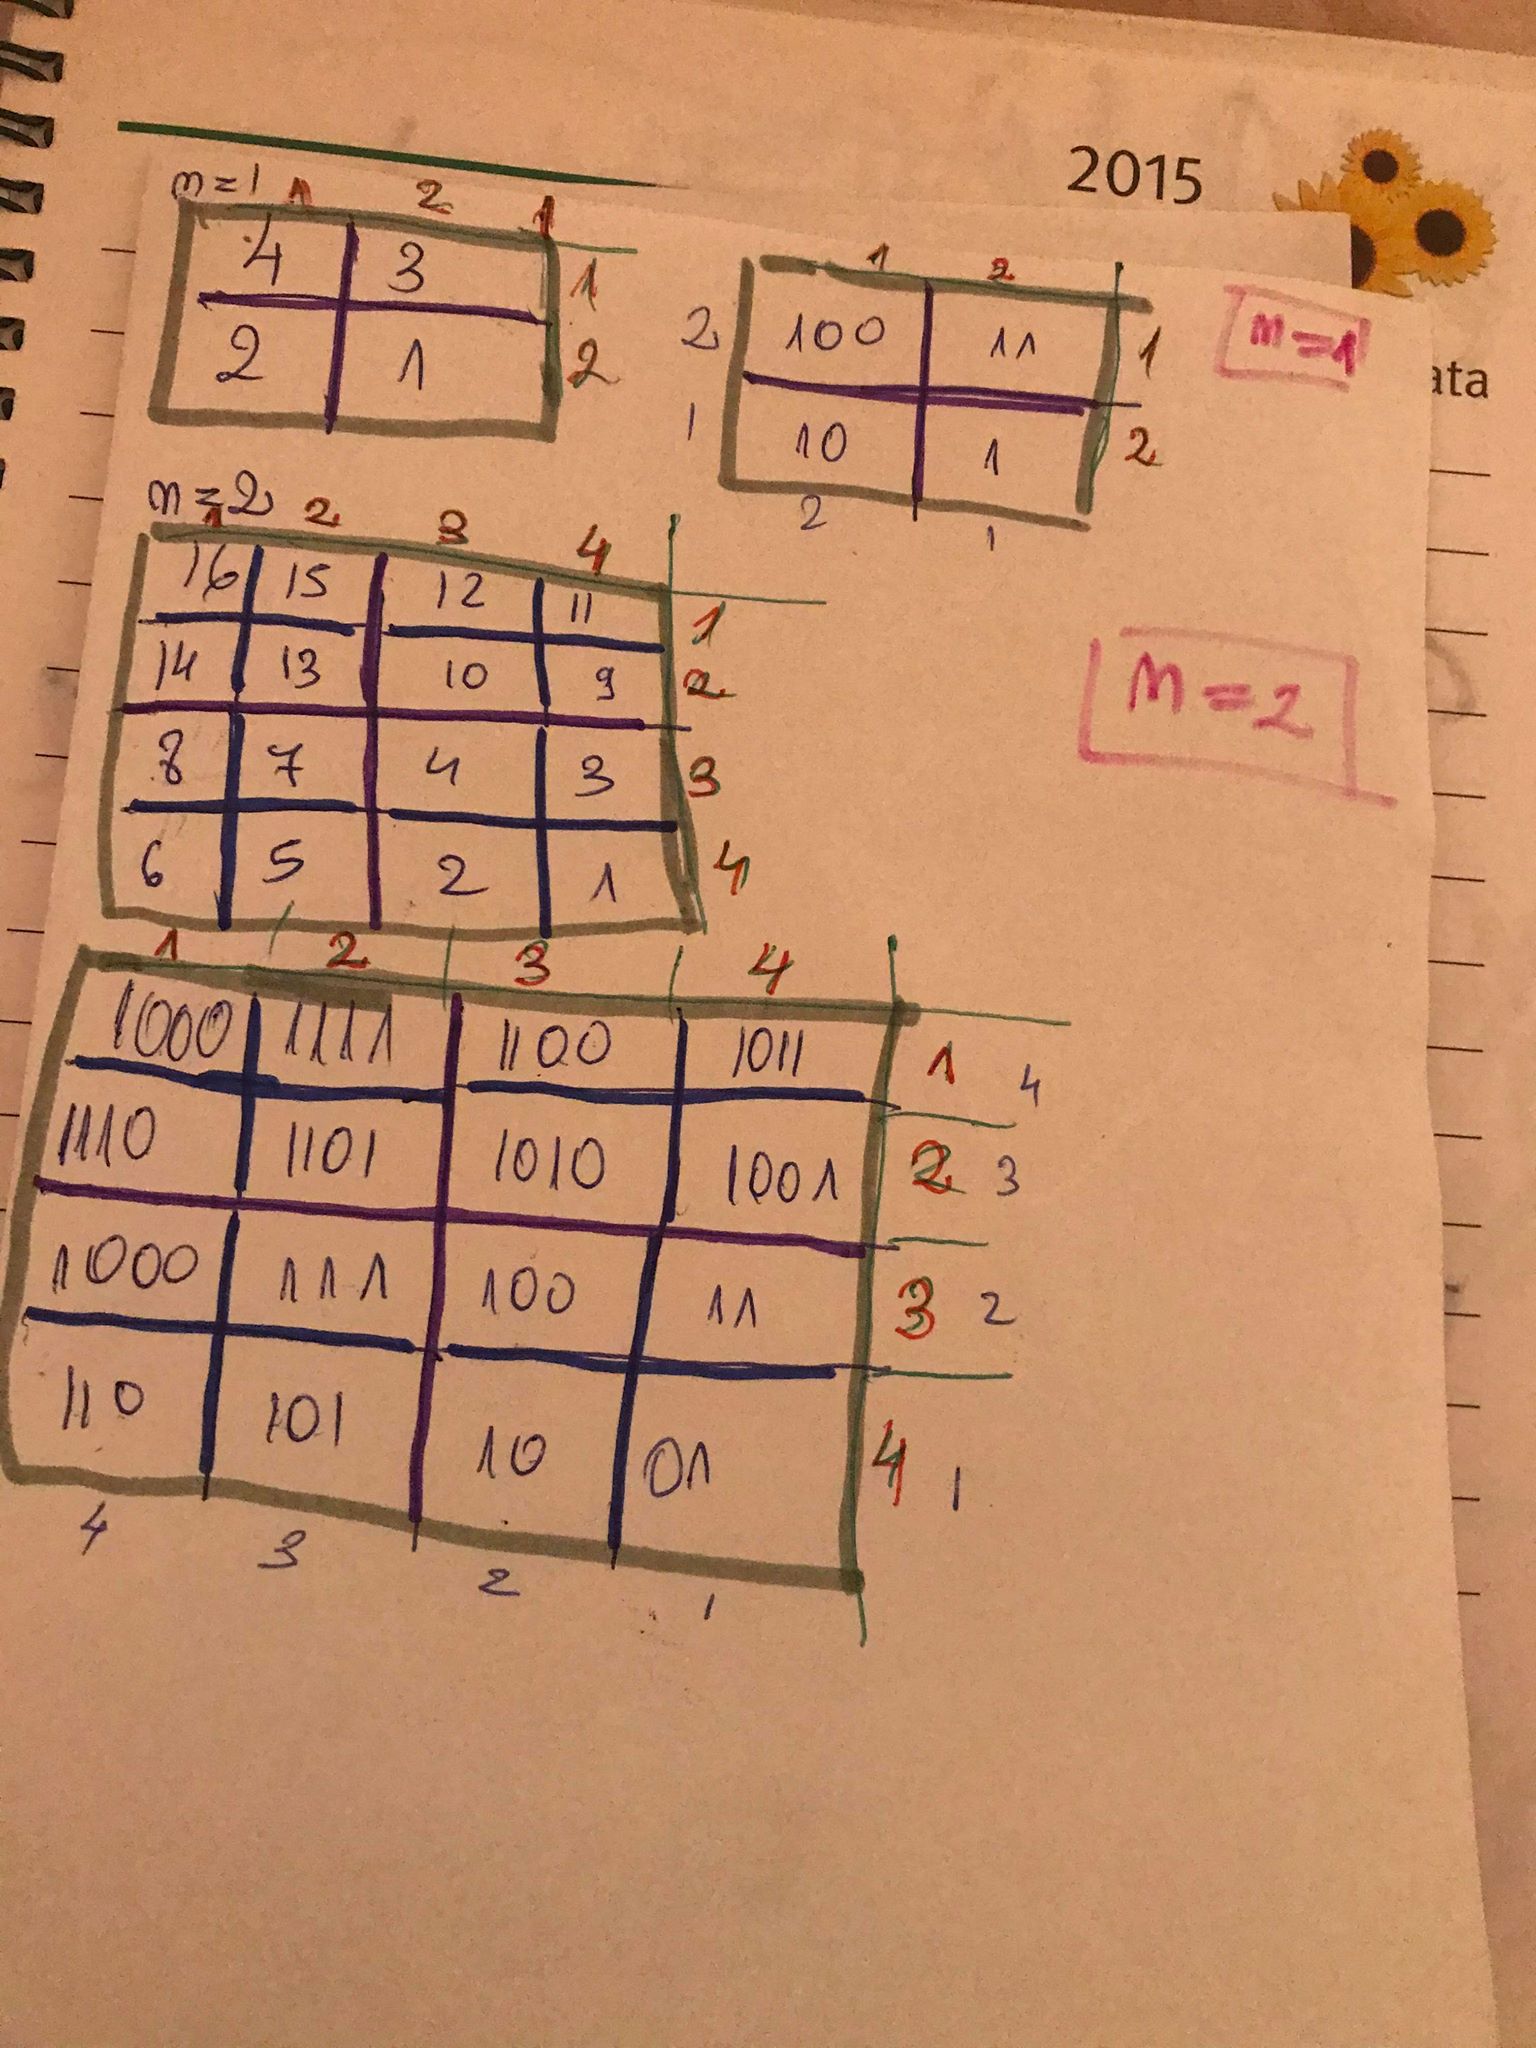 2015
n=1 1 2 1
4 3 1
2 1 2
1 2
2 100 11 1
1 10 1 2
2 1
n=1
ata
n=2
1 2 3 4
16 15 12 11 1
14 13 10 9 2
8 7 4 3 3
6 5 2 1 4
n=2
1 2 3 4
1000 1111 1100 1011 1 4
1110 1101 1010 1001 2 3
1000 111 100 11 3 2
110 101 10 01 4 1
4 3 2 1